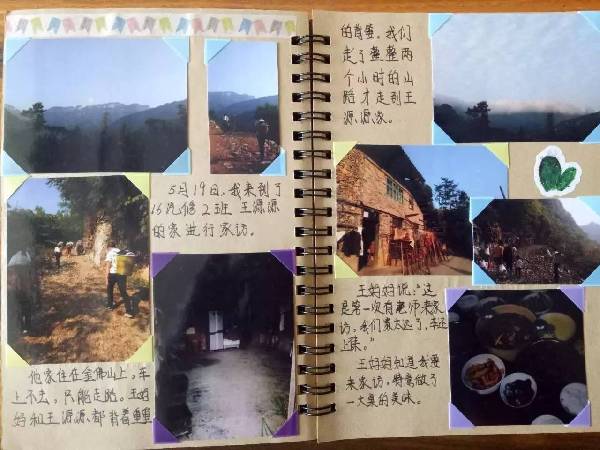 5月19日,我来到了
15汽修2班 王源源
的家进行家访。
他家住在金佛山上,车
上不去,只能走路。王妈
妈和王源源都背着重重
的背篓。我们
走了整整两
个小时的山
路才走到王
源源家。
王妈妈说:“这
是第一次有老师来家
访,我们家太远了,车还
上不来。”
王妈妈知道我要
来家访,特意做了
一大桌的美味。